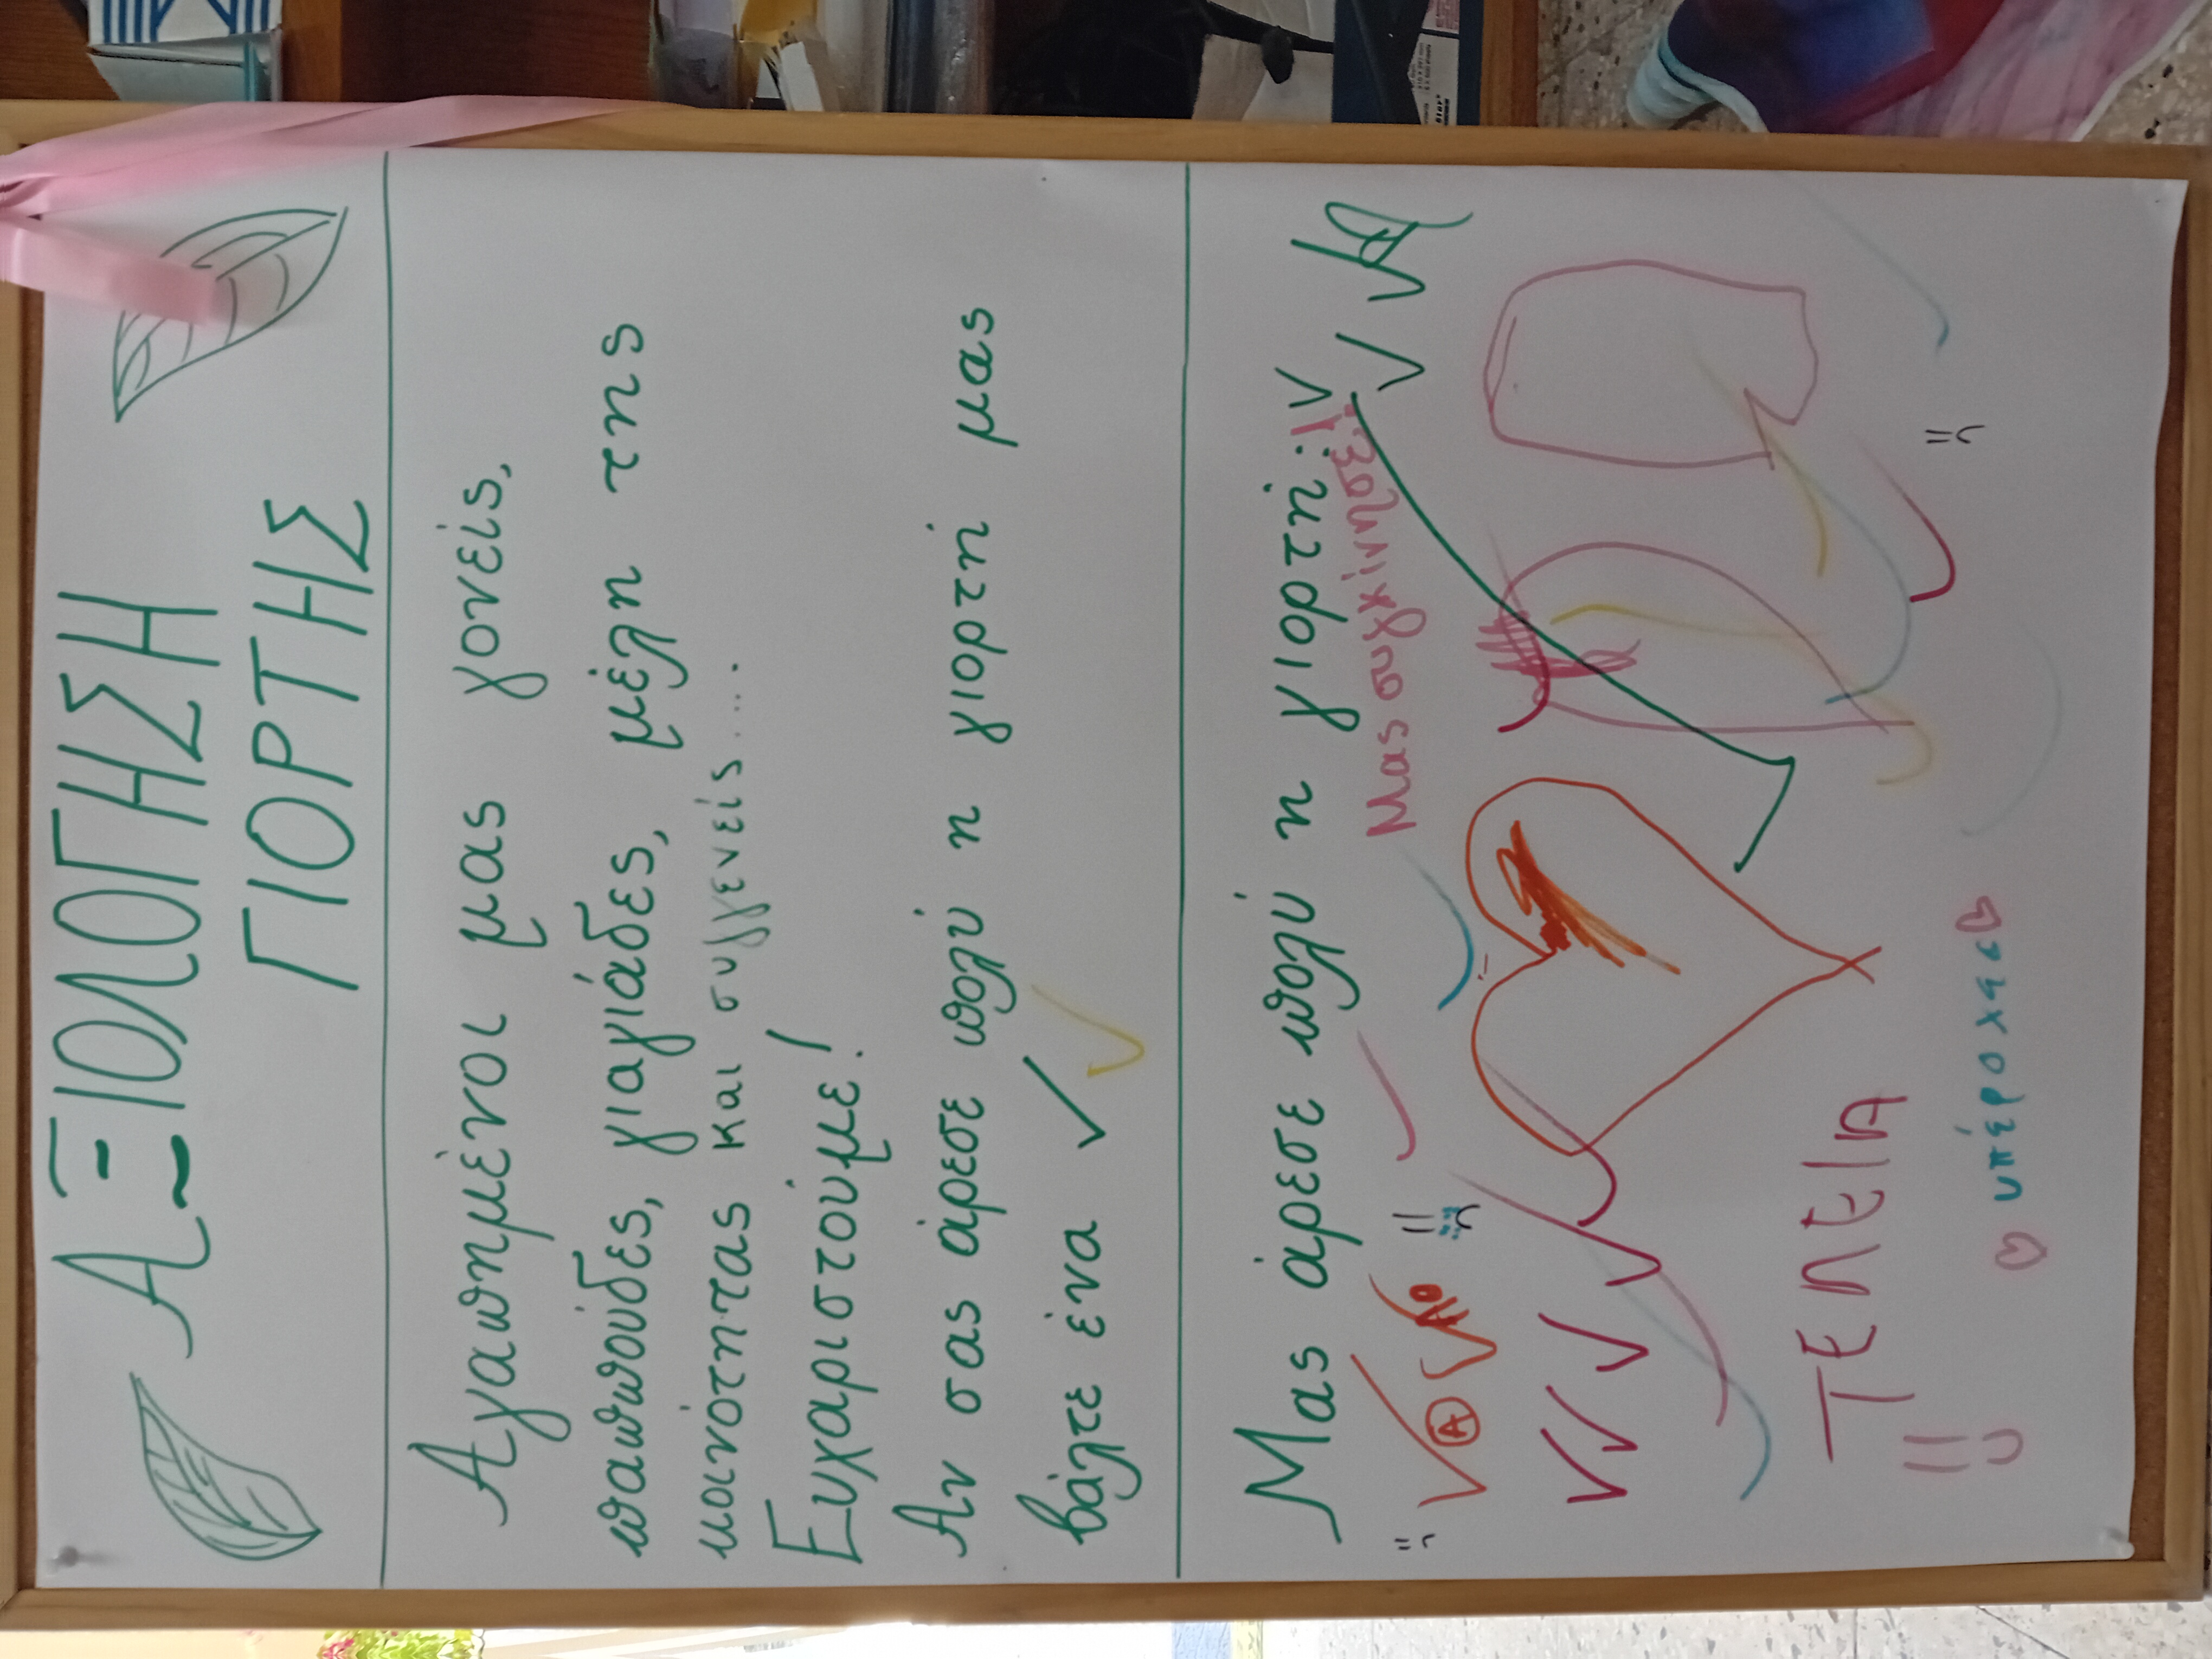 ΑΞΙΟΛΟΓΗΣΗ
ΓΙΟΡΤΗΣ
Αγαπημένοι μας γονείς,
παππούδες, γιαγιάδες, μέλη της
κοινότητας και συγγενείς....
Ευχαριστούμε!
Αν σας άρεσε πολύ η γιορτή μας
βάλτε ένα ✓
Μας άρεσε πολύ η γιορτή:
ΤΕΛΕΙΑ
υπέροχηα